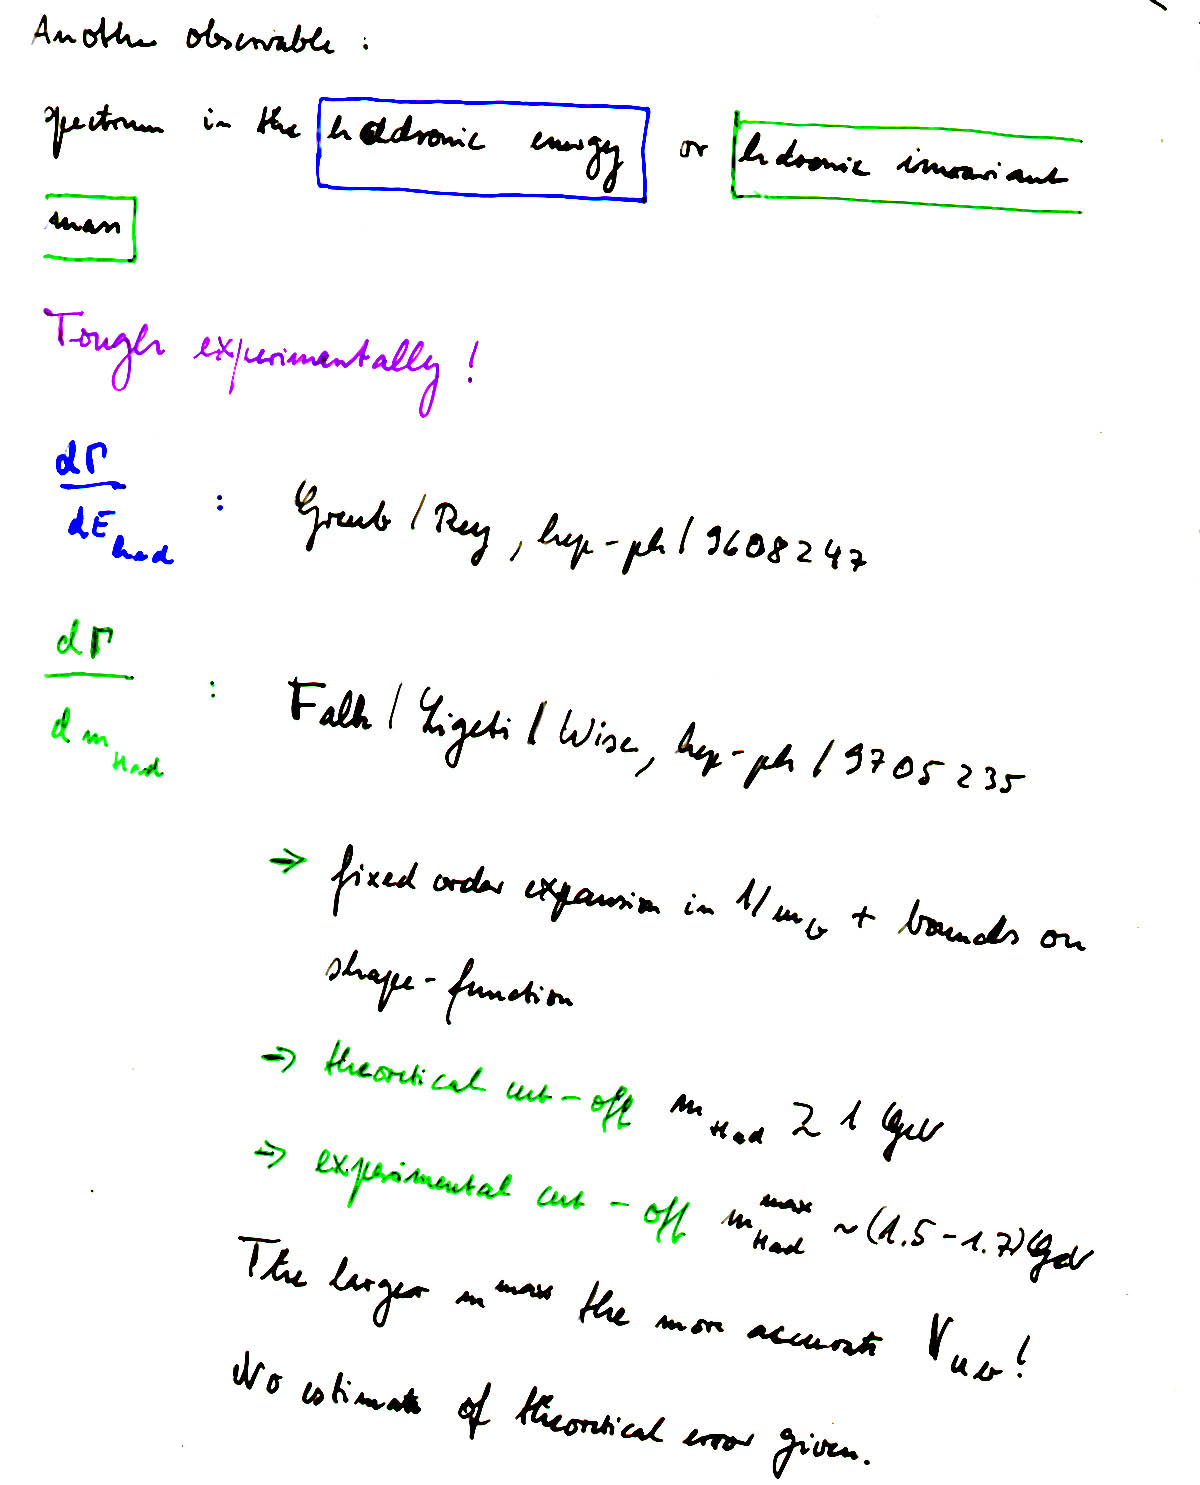 Another observable :
spectrum in the hadronic energy or hdronic invariant
mass
Tough experimentally !
dΓ
dE_had : Greub / Rey , hep-ph / 9608247
dΓ
d m_Had : Falk / Ligeti / Wise, hep-ph / 9705235
⇒ fixed order expansion in 1/m_b + bounds on
shape-function
⇒ theoretical cut-off m_Had ≳ 1 GeV
⇒ experimental cut-off m_Had^max ~ (1.5 - 1.7) GeV
The larger m^max the more accurate V_ub !
No estimate of theoretical error given.